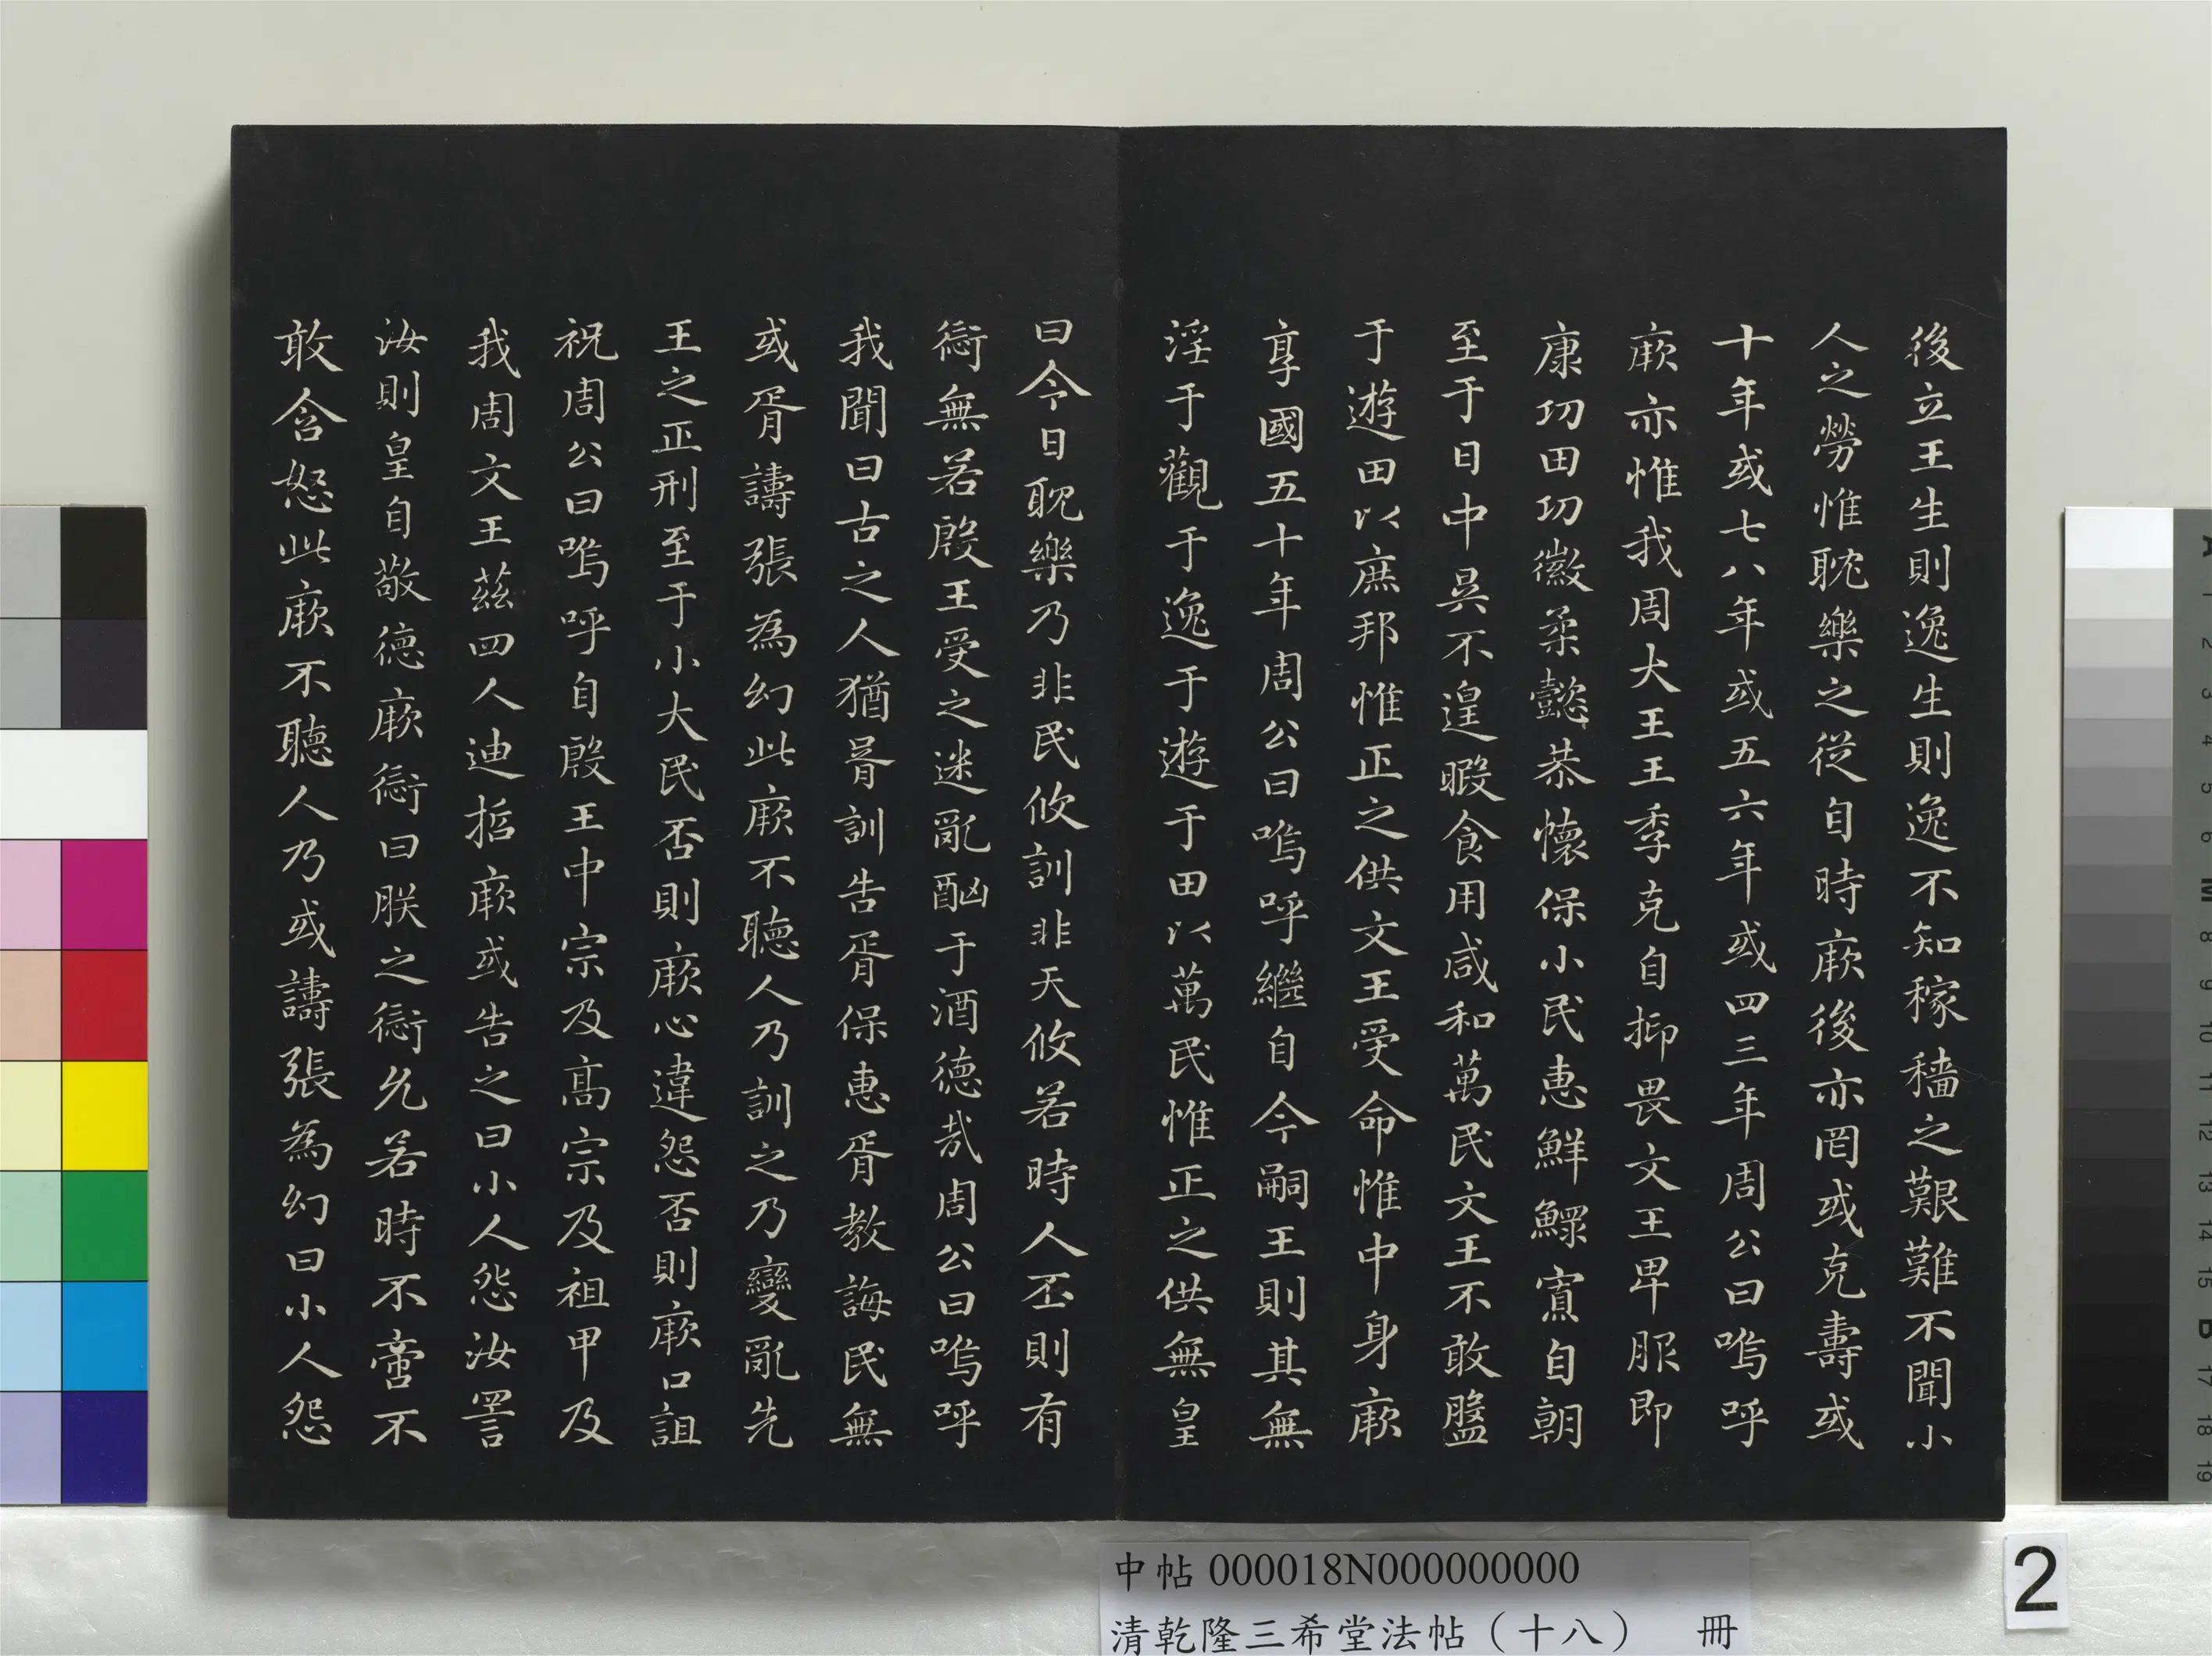 後立王生則逸生則逸不知稼穡之艱難不聞小
人之勞惟耽樂之從自時厥後亦罔或克壽或
十年或七八年或五六年或四三年周公曰嗚呼
厥亦惟我周大王王季克自抑畏文王卑服即
康功田功徽柔懿恭懷保小民惠鮮鰥寡自朝
至于日中昃不遑暇食用咸和萬民文王不敢盤
于遊田以庶邦惟正之供文王受命惟中身厥
享國五十年周公曰嗚呼繼自今嗣王則其無
淫于觀于逸于遊于田以萬民惟正之供無皇
曰今日耽樂乃非民攸訓非天攸若時人丕則有
愆無若殷王受之迷亂酗于酒德哉周公曰嗚呼
我聞曰古之人猶胥訓告胥保惠胥教誨民無
或胥譸張為幻此厥不聽人乃訓之乃變亂先
王之正刑至于小大民否則厥心違怨否則厥口詛
祝周公曰嗚呼自殷王中宗及高宗及祖甲及
我周文王茲四人迪哲厥或告之曰小人怨汝詈
汝則皇自敬德厥愆曰朕之愆允若時不啻不
敢含怒此厥不聽人乃或譸張為幻曰小人怨
中帖 000018N000000000
清乾隆三希堂法帖（十八） 冊
2